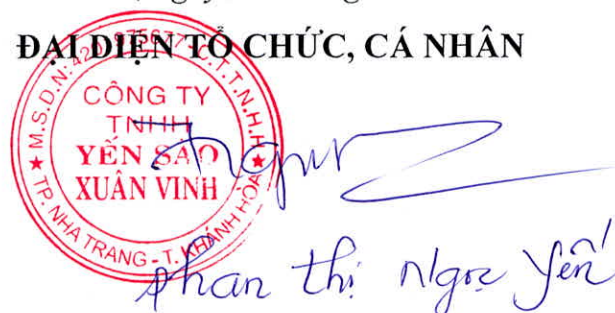 ĐẠI DIỆN TỔ CHỨC, CÁ NHÂN
M.S.D.N:
C.T.T.N.H.H
CÔNG TY
TNHH
YẾN SÀO
XUÂN VINH
TP. NHA TRANG - T. KHÁNH HÒA
phan thị Ngọc Yến